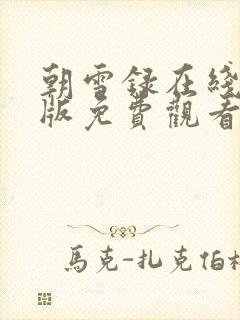 朝雪録在綫
版免費觀看
馬克-扎克伯格